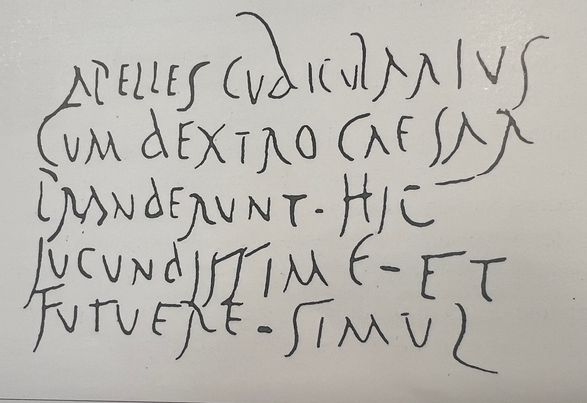 APELLES CVBICVLARIVS
CVM DEXTRO CAESAR
PRANDERVNT · HIC
IVCVNDISSIME · ET
FVTVERE · SIMVL